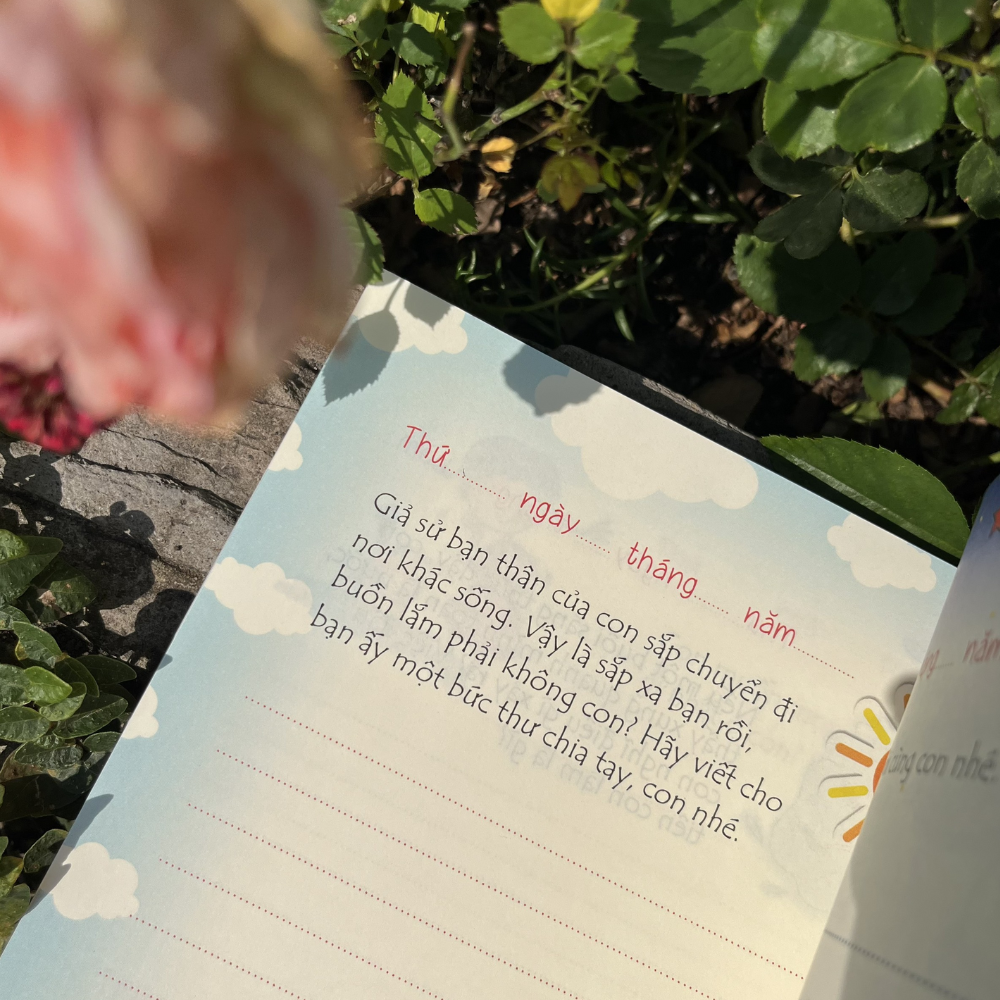 Thứ............ ngày....... tháng....... năm............
Giả sử bạn thân của con sắp chuyển đi
nơi khác sống. Vậy là sắp xa bạn rồi,
buồn lắm phải không con? Hãy viết cho
bạn ấy một bức thư chia tay, con nhé.
năm
con nhé.